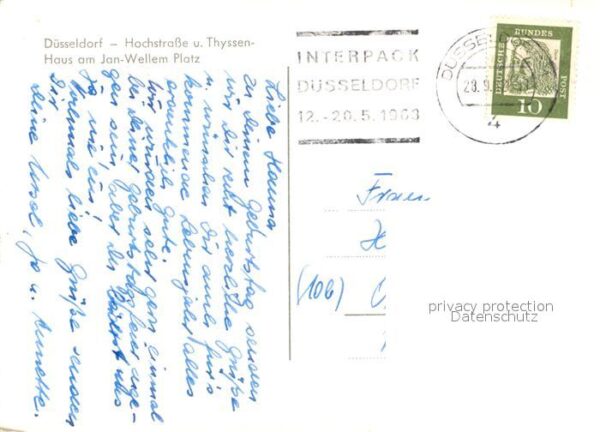 Düsseldorf – Hochstraße u. Thyssen-
Haus am Jan-Wellem Platz
INTERPACK
DÜSSELDORF
12.-20.5.1963
DÜSSELDORF
4
DEUTSCHE BUNDESPOST
10
Liebe Hanna
zu Deinem Geburtstag senden
wir Dir recht herzliche Grüße
u. wünschen Dir auch für's
kommende Lebensjahr alles
erdenklich Gute.
Wir würden sehr gern einmal
bei Deiner Geburtstagsfeier
gen sein, aber
Ja wie ein!
Vielmals liebe Grüße senden
Dir
Deine Ursel, Jo u. Annette.
Frau
(10b)
privacy protection
Datenschutz